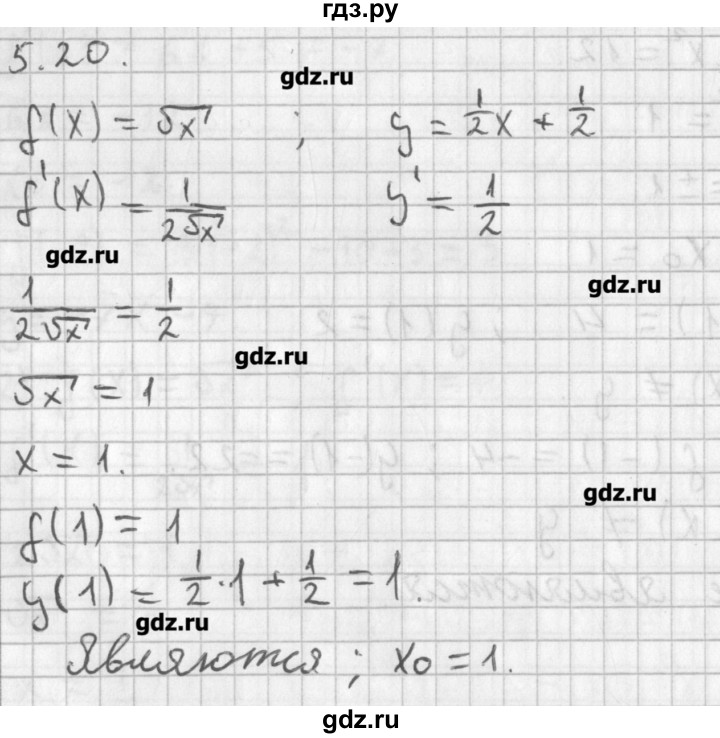 гдз.ру
5.20.
gdz.ru
f(x) = √x ; y = 1/2 x + 1/2
f'(x) = 1/(2√x) y' = 1/2
gdz.ru
gdz.ru
1/(2√x) = 1/2
gdz.ru
√x = 1
x = 1.
gdz.ru
f(1) = 1
y(1) = 1/2 · 1 + 1/2 = 1.
gdz.ru
Являются ; x₀ = 1.
gdz.ru